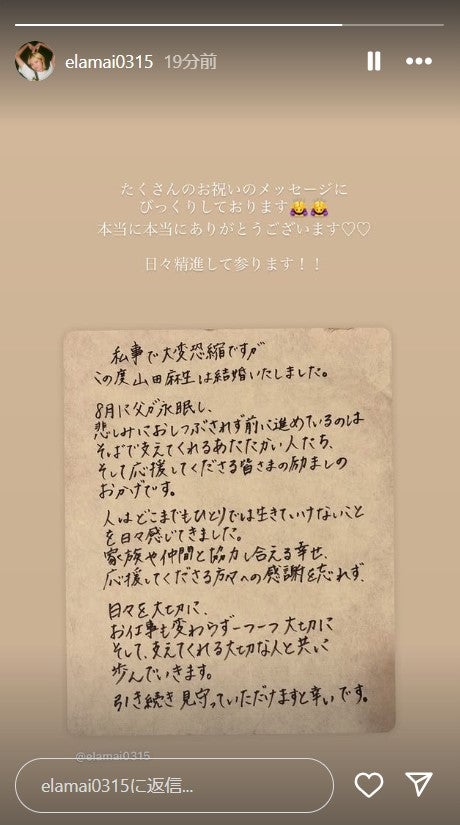 elamai0315 19分前
たくさんのお祝いのメッセージに
びっくりしております🙇‍♀️🙇‍♀️
本当に本当にありがとうございます♡♡
日々精進して参ります！！
私事で大変恐縮ですが
この度山田麻生は結婚いたしました。
8月に父が永眠し、
悲しみにおしつぶされず前に進めているのは
そばで支えてくれるあたたかい人たち、
そして応援してくださる皆さまの励ましの
おかげです。
人はどこまでもひとりでは生きていけないこと
を日々感じてきました。
家族や仲間と協力し合える幸せ、
応援してくださる方々への感謝を忘れず、
日々を大切に、
お仕事も変わらず一つ一つ大切に
そして、支えてくれる大切な人と共に
歩んでいきます。
引き続き見守っていただけますと幸いです。
@elamai0315
elamai0315に返信...